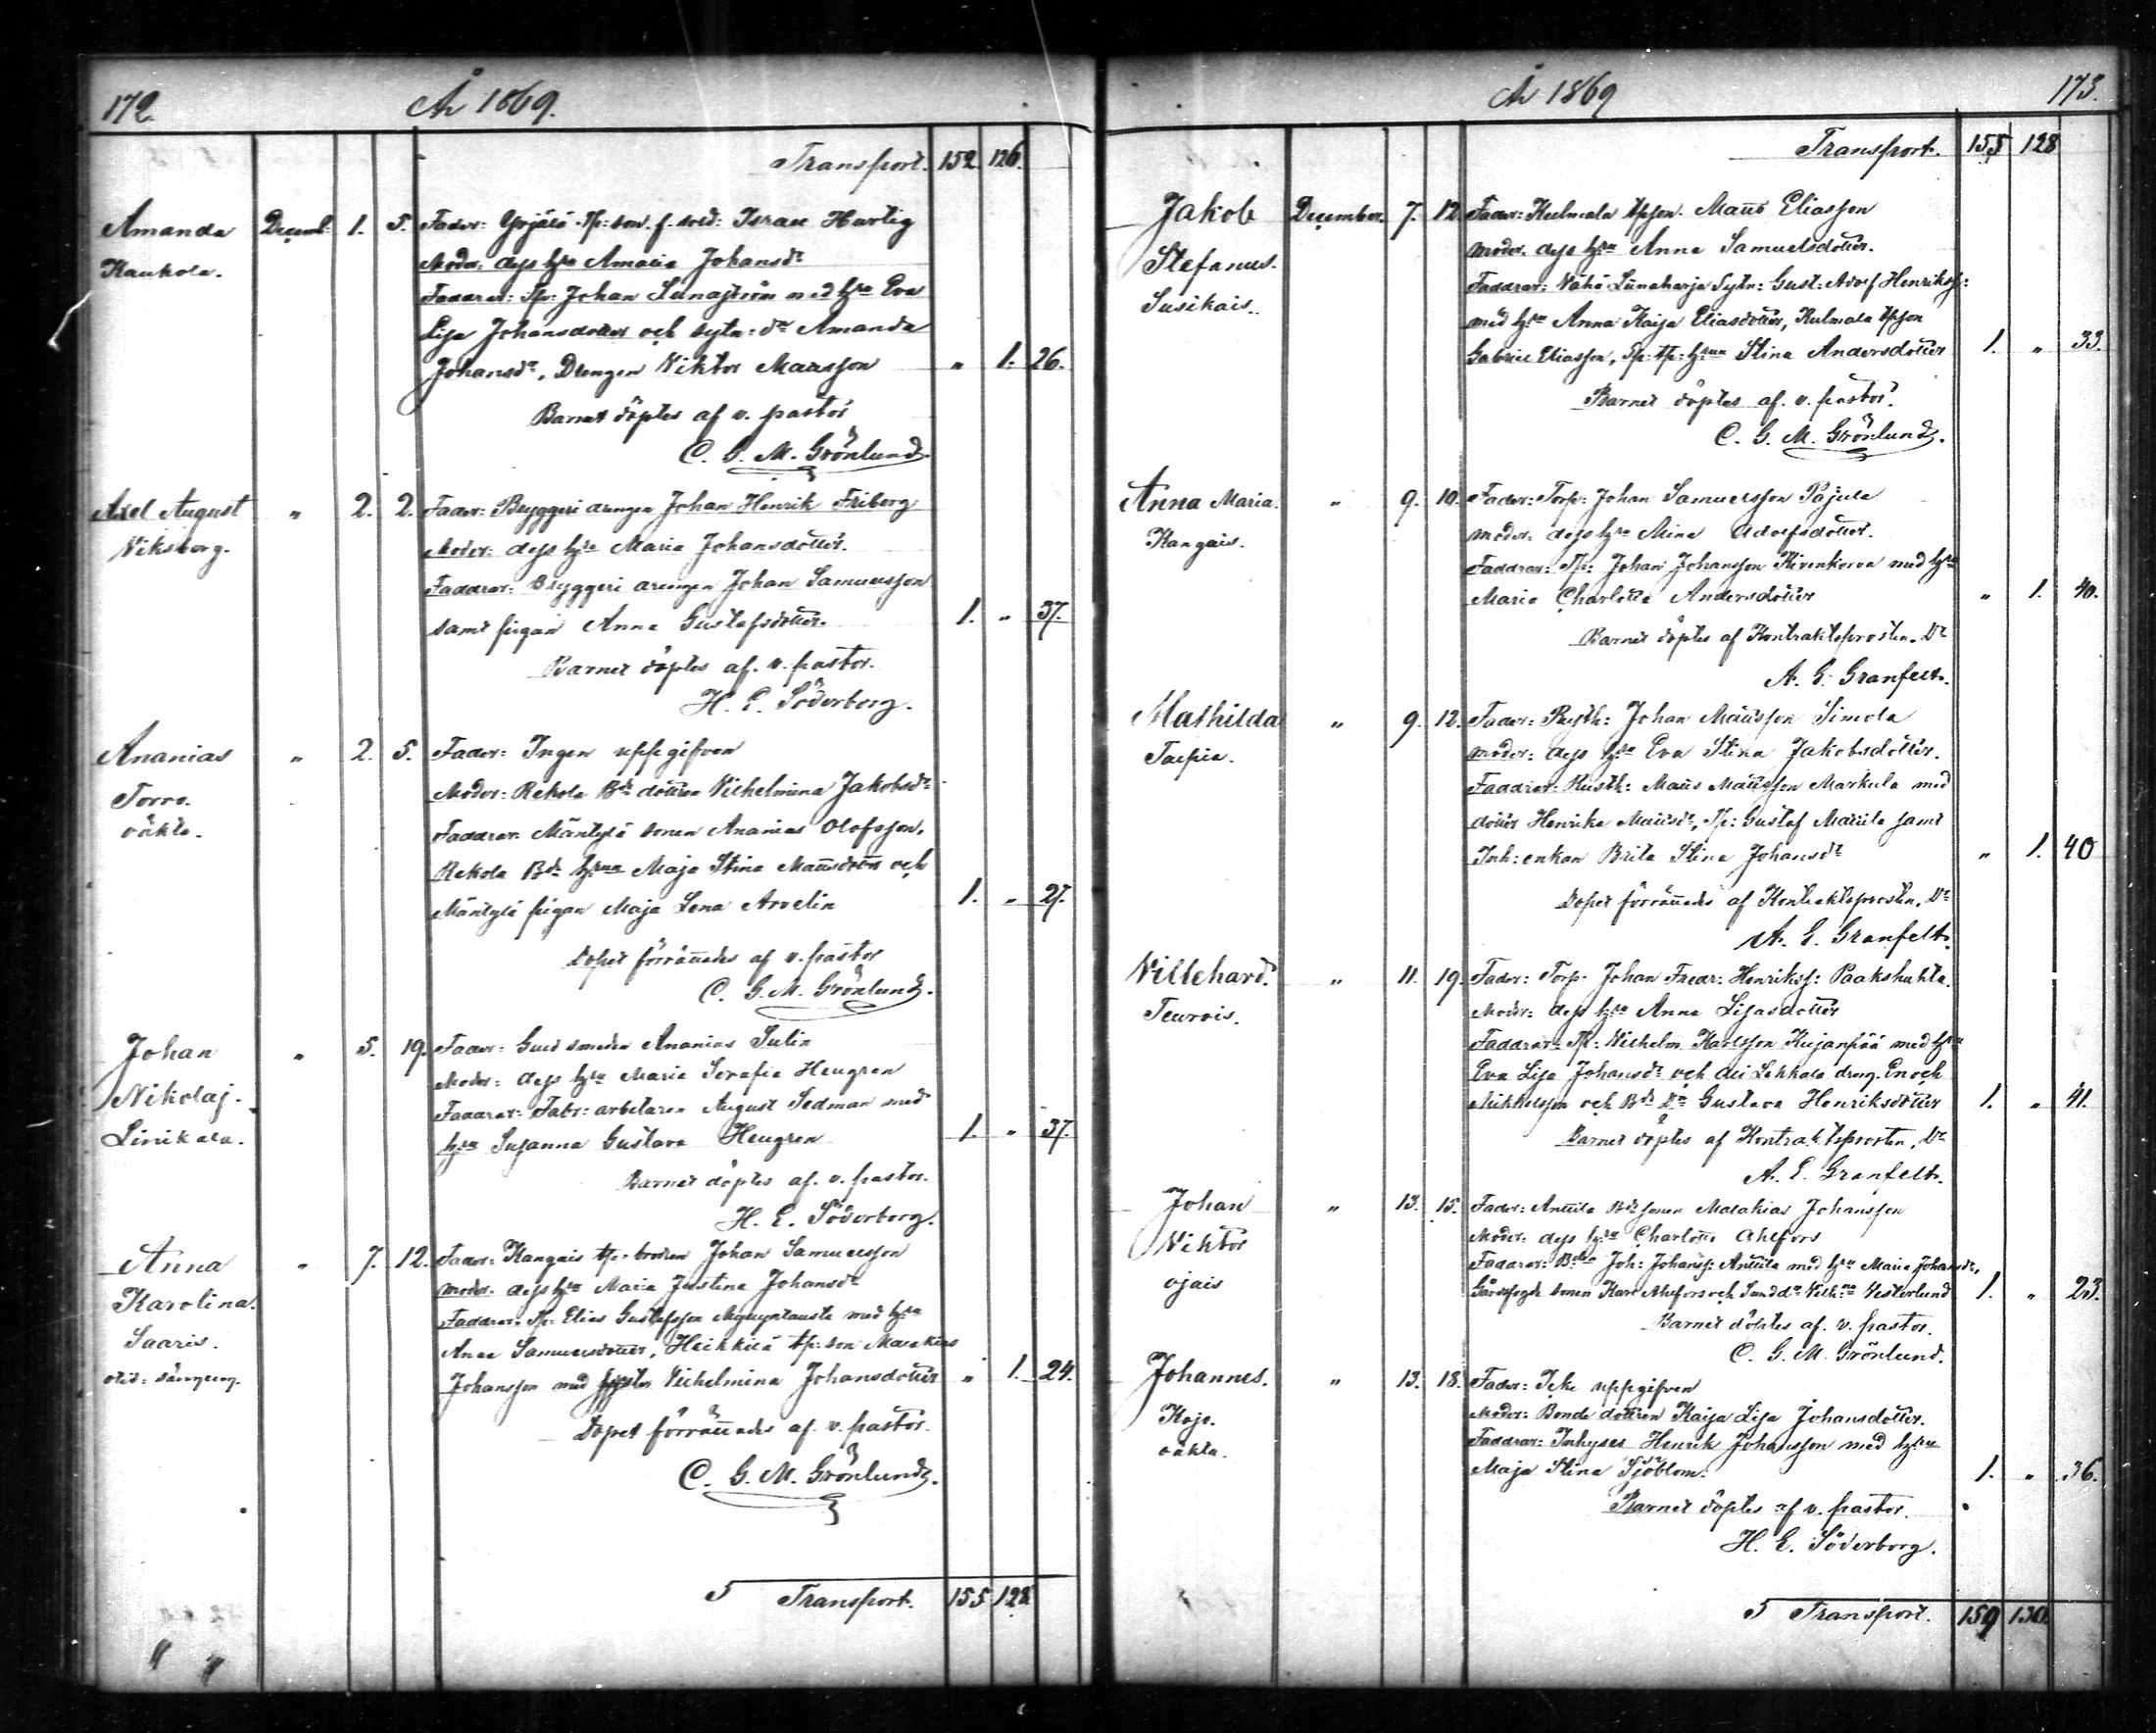 172. År 1869.
Transport. 152 126.
Amanda Decemb: 1. 5. Fader: Yrjälä Tp: son. f. sold: Israel Hartig
Kaukola. Moder: dess h:u Amalia Johansd:r
Faddrar: Tp: Johan Lunaström med h:u Eva
Lisa Johansdotter och sytn: d:r Amanda
Johansd:r, Drengen Viktor Mattsson " 1. 26.
Barnet döptes af v. pastor
C. G. M. Grönlund.
Axel August " 2. 2. Fader: Bryggeri drengen Johan Henrik Friberg
Viksberg. Moder: dess h:u Maria Johansdotter.
Faddrar: Bryggeri drengen Johan Samuelsson
samt pigan Anna Gustafsdotter. 1. " 37.
Barnet döptes af. v. pastor.
H. E. Söderborg.
Ananias " 2. 5. Fader: Ingen uppgifven
Torro. Moder: Rekola B:de dottren Vilhelmina Jakobsd:r
oäkta. Faddrar: Mäntylä sonen Ananias Olofsson,
Rekola B:de h:una Maja Stina Mattsdotter och
Mäntylä pigan Maja Lena Arvelin 1. " 27.
Dopet förrättades af v. pastor
C. G. M. Grönlund.
Johan " 5. 19. Fader: Guldsmeden Ananias Julin
Nikolaj. Moder: dess h:u Maria Serafia Hengren
Linikala. Faddrar: Fabr: arbetaren August Sedman med
h:u Susanna Gustava Hengren 1. " 37.
Barnet döptes af. v. pastor.
H. E. Söderborg.
Anna " 7. 12. Fader: Kangais tp: brodren Johan Samuelsson
Karolina. Moder. dess h:u Maria Justina Johansd:r
Saaris. Faddrar: Tp: Elias Gustafsson med h:u
Anna Samuelsdotter, Heikkilä tp: son Malakias
Johansson med syster Vilhelmina Johansdotter " 1. 24.
Dopet förrättades af. v. pastor.
C. G. M. Grönlund.
5 Transport. 155 128
År 1869 173.
Transport. 155 128
Jakob December. 7. 12. Fader: Kulmala tpson. Matts Eliasson
Stefanus. Moder. dess h:u Anna Samuelsdotter.
Susikais. Faddrar: Vähä Linnaharja Sytn: Gust: Adolf Henrikss:
med h:u Anna Kaija Eliasdotter, Kulmala tpson
Gabriel Eliasson, Tp: h:una Stina Andersdotter 1. " 33.
Barnet döptes af. v. pastor.
C. G. M. Grönlund.
Anna Maria. " 9. 10. Fader: Torp: Johan Samuelsson Pajula
Kangais. Moder: dess h:u Mina Adolfsdotter.
Faddrar: Tp: Johan Johansson Kivenkorva med h:u
Maria Charlotta Andersdotter " 1. 40.
Barnet döptes af Kontraktsprosten. D:r
A. E. Granfelt.
Mathilda " 9. 12. Fader: Rusth: Johan Mattsson Simola
Taipia. Moder: dess h:u Eva Stina Jakobsdotter.
Faddrar: Rusth: Matts Mattsson Markula med
dotter Henrika Mattsd:r, Tp: Gustaf Mattila samt
Inh: enkan Brita Stina Johansd:r " 1. 40
Dopet förrättades af Kontraktsprosten, D:r
A. E. Granfelt.
Villehard. " 11. 19. Fader: Torp: Johan Fredr: Henrikss: Paakshuhta.
Teurois. Moder: dess h:u Anna Lisasdotter
Faddrar: Tp: Vilhelm Karlsson Kujanpää med h:u
Eva Lisa Johansd:r och Ali Lekkala dreng. Enoch
Mikkelsson och B:de d:r Gustava Henriksdotter 1. " 41.
Barnet döptes af Kontraktsprosten, D:r
A. E. Granfelt.
Johan " 13. 15. Fader: Anttila B:de sonen Malakias Johansson
Viktor Moder: dess h:u Charlotta Ahlfors
Ojais Faddrar: B:de Joh: Johanss: Anttila med h:u Maria Johansd:r,
sonen Karl Ahlfors och Vilh:na Vesterlund 1. " 23.
Barnet döptes af. v. pastor.
C. G. M. Grönlund.
Johannes. " 13. 18. Fader: Icke uppgifven
Kojo. Moder: Bonde dottren Kaija Lisa Johansdotter.
oäkta. Faddrar: Inhyses Henrik Johansson med h:u
Maja Stina Sjöblom. 1. " 36.
Barnet döptes af v. pastor.
H. E. Söderborg.
5 Transport. 159 130.